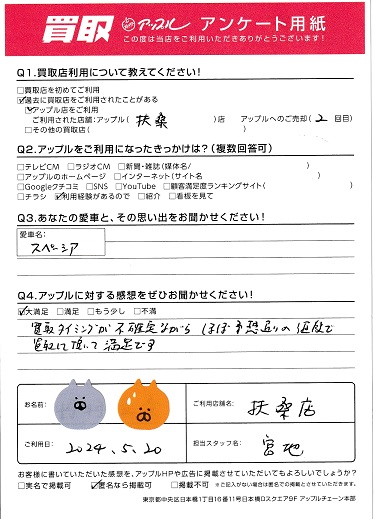 買取 アップル アンケート用紙
この度は当店をご利用いただきありがとうございます!
Q1.買取店利用について教えてください!
□買取店を初めてご利用
☑過去に買取店をご利用されたことがある
☑アップル店をご利用
ご利用された店舗:アップル( 扶桑 )店 アップルへのご売却( 2 回目)
□その他の買取店( )
Q2.アップルをご利用になったきっかけは?(複数回答可)
□テレビCM □ラジオCM □新聞・雑誌(媒体名/ )
□アップルのホームページ □インターネット(サイト名 )
□Googleクチコミ □SNS □YouTube □顧客満足度ランキングサイト( )
□チラシ ☑利用経験があるので □紹介 □看板を見て
Q3.あなたの愛車と、その思い出をお聞かせください!
愛車名:
スペーシア
Q4.アップルに対する感想をぜひお聞かせください!
☑大満足 □満足 □もう少し □不満
買取タイミングが不確定ながら ほぼ予想通りの値段で
買取して頂いて満足です
お名前:
ご利用店舗名: 扶桑店
ご利用日: 2024.5.20
担当スタッフ名: 宮地
お客様に書いていただいた感想を、アップルHPや広告に掲載させていただいてもよろしいでしょうか?
□実名で掲載可 ☑匿名なら掲載可 □掲載不可 ※ご記入がない場合は匿名での掲載とさせていただきます。
東京都中央区日本橋1丁目16番11号日本橋Dスクエア9F アップルチェーン本部